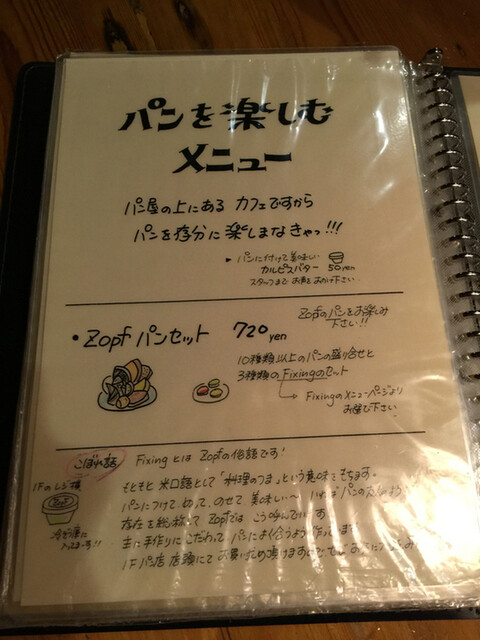 パンを楽しむ
メニュー
パン屋の上にある カフェですから
パンを存分に楽しまなきゃっ!!!
▶ パンに付けて美味しい
カルピスバター 50yen
スタッフまで お声をおかけ下さい。
Zopfのパンをお楽しみ
下さい!!
• Zopf パンセット 720yen
10種類以上のパンの盛り合せと
3種類のFixingのセット
Fixingのメニューページより
お選び下さい。
こぼれ話 Fixing とは Zopfの俗語です!
1Fのレジ横
冷蔵庫に
入ってまーす!!
もともと 米口語として「料理のつま」という意味をもちます。
パンにつけて、のせて 美味しい
存在を総称して Zopfでは こう呼んでいます。
主に手作りにこだわって パンによく合うよう作って
1F パン店 店頭にて お買い求め頂けますので